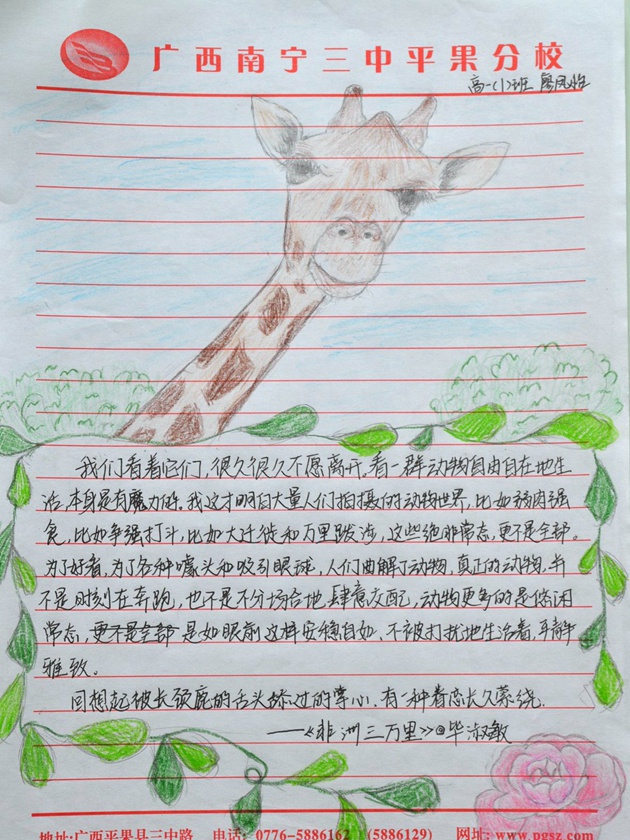 广西南宁三中平果分校
高一(1)班 廖凤怡
我们看着它们,很久很久不愿离开,看一群动物自由自在地生
活,本身是有魔力的。我这才明白大量人们拍摄的动物世界,比如弱肉强
食,比如争强打斗,比如大迁徙和万里跋涉,这些绝非常态,更不是全部。
为了好看,为了各种噱头和吸引眼球,人们曲解了动物,真正的动物,并
不是时刻在奔跑,也不是不分场合地肆意交配,动物更多的是悠闲
常态,更不是全部是如眼前这样安稳自如、不被打扰地生活着,平静
雅致。
回想起被长颈鹿的舌头舔过的掌心,有一种眷恋长久萦绕.
——《非洲三万里》@毕淑敏
地址:广西平果县三中路 电话:0776-5886162 (5886129) 网址:www.pgsz